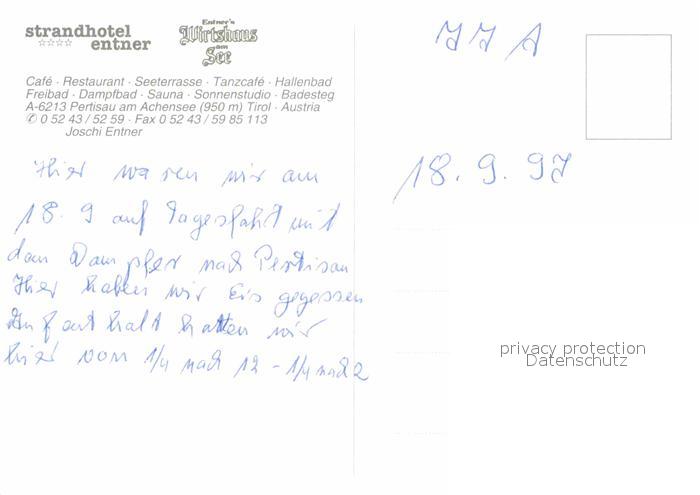 strandhotel
☆☆☆☆ entner
Entner's
Wirtshaus
am
See
Café · Restaurant · Seeterrasse · Tanzcafé · Hallenbad
Freibad · Dampfbad · Sauna · Sonnenstudio · Badesteg
A-6213 Pertisau am Achensee (950 m) Tirol · Austria
✆ 0 52 43 / 52 59 · Fax 0 52 43 / 59 85 113
Joschi Entner
Hier waren wir am
18. 9 auf Tagesfahrt mit
dem Dampfer nach Pertisau
Hier haben wir Eis gegessen
Aufenthalt hatten wir
hier von 1/4 nach 12 - 1/4 nach 2
18. 9. 97
privacy protection
Datenschutz